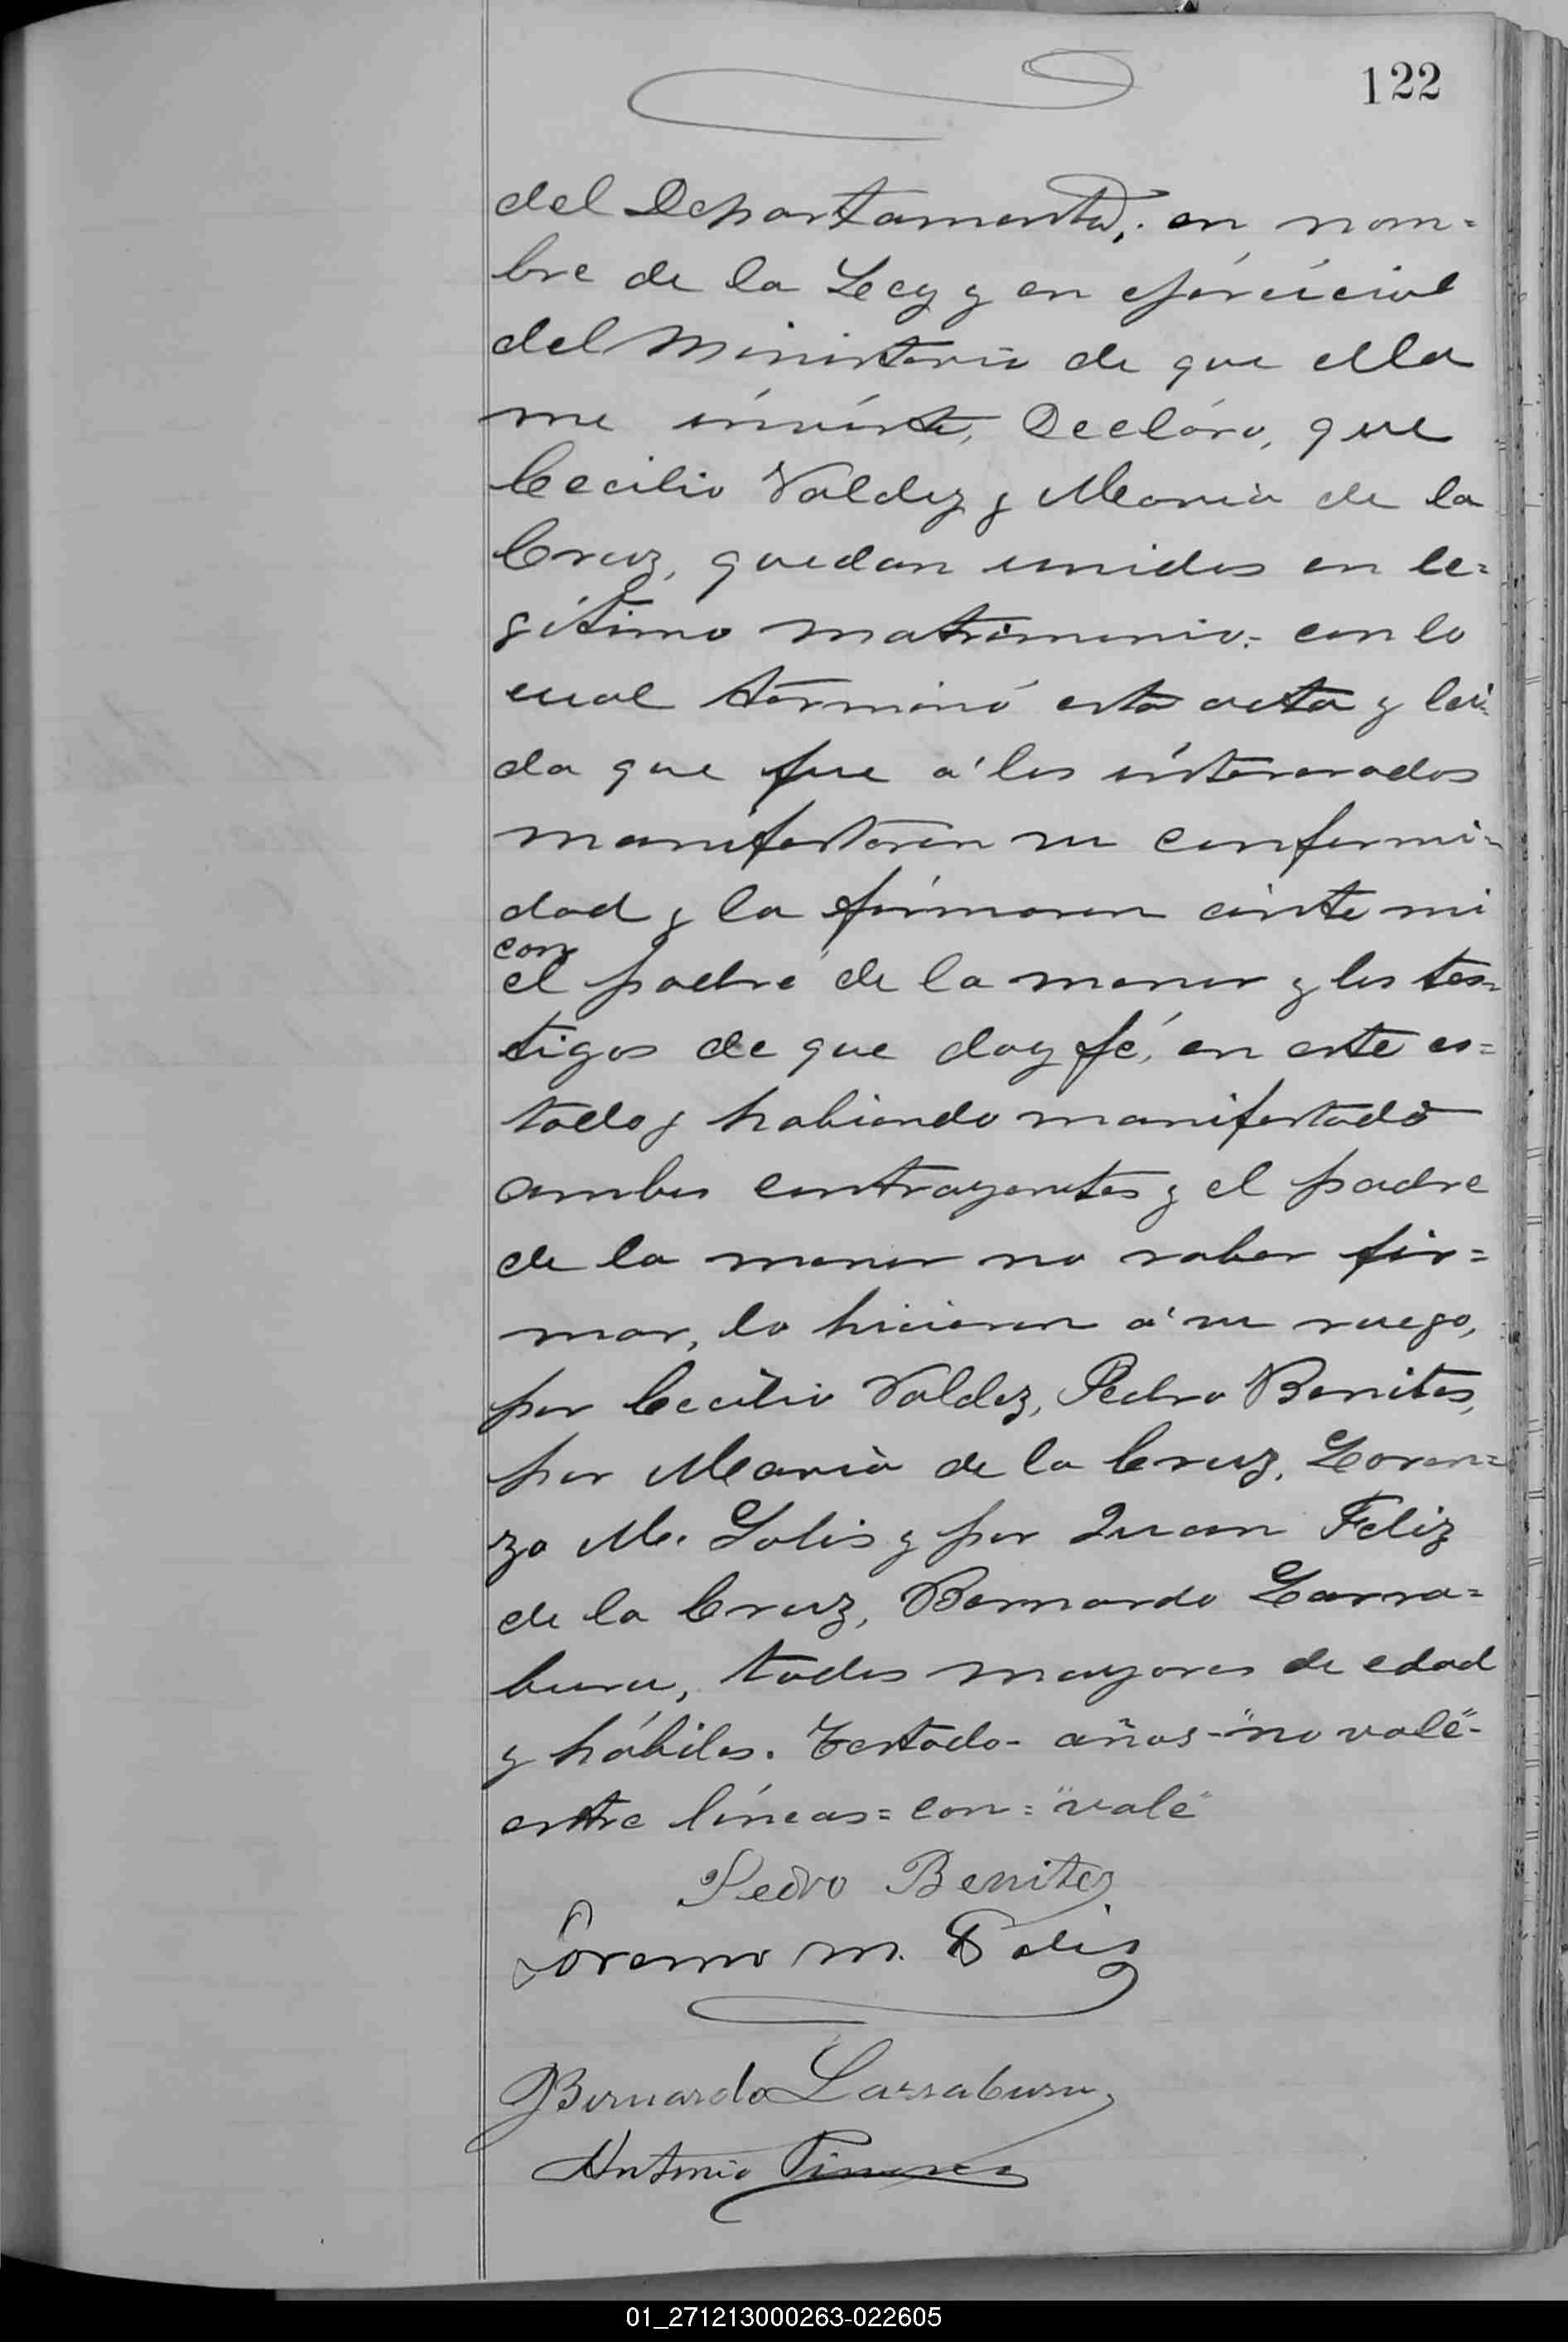 122
del Departamento, en nom=
bre de la Ley y en ejercicio
del Ministerio de que ella
me inviste, Decláro, que
Cecilio Valdez y Maria de la
Cruz, quedan unidos en le=
gítimo matrimonio: con lo
cual terminó esta acta y leí=
da que fue á los interesados
manifestaron su conformi=
dad y la firmaron ante mi
con
el padre de la menor y los tes=
tigos de que doy fé, en este es=
tado y habiendo manifestado
ambos contrayentes y el padre
de la menor no saber fir=
mar, lo hicieron á su ruego,
por Cecilio Valdez, Pedro Benites,
por Maria de la Cruz, Loren=
zo M. Solis y por Juan Feliz
de la Cruz, Bernardo Larra=
buru, todos mayores de edad
y hábiles. Testado - años - "no vale" -
entre líneas = con = "vale"
Pedro Benitez
Lorenso M. Solis
Bernardo Larraburu
Antonio
01_271213000263-022605